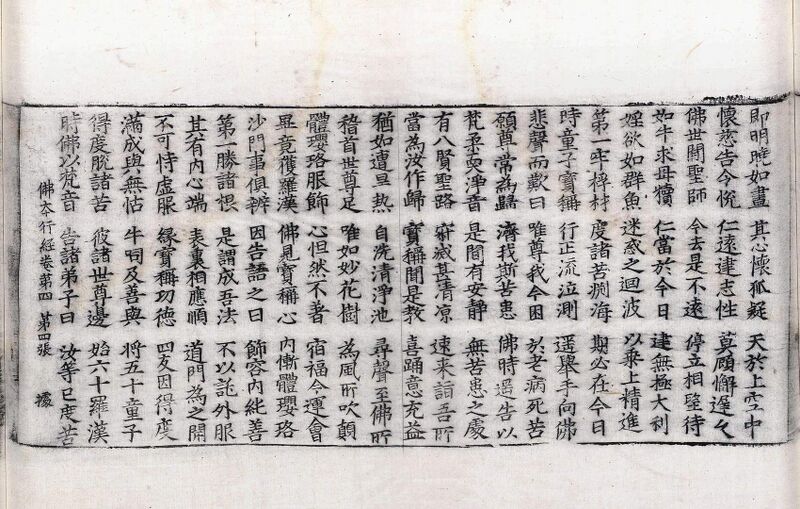 即明曉如晝 其心懷狐疑 天於上空中
懷慈告令悅 仁遠建志性 莫顧懈遲久
佛世關聖師 今去是不遠 停立相望待
如牛求母犢 仁當於今日 建無極大利
婬欲如群魚 迷惑之迴波 以乘上精進
第一牢桴材 度諸苦淵海 期必在今日
時童子寶稱 行正流泣測 遥舉手向佛
悲聲而歎曰 唯尊我今困 於老病死苦
願尊常為歸 濟我斯苦患 佛時還告以
梵柔耎淨音 是間有安靜 無苦患之處
有八賢聖路 寂滅甚清凉 速来詣吾所
當為汝作歸 寶稱聞是教 喜踊意充益
猶如遭旦熱 自洗清淨池 尋聲至佛所
稽首世尊足 唯如妙花樹 為風所吹顛
體瓔珞服飾 心怛然不著 宿福令運會
畢竟獲羅漢 佛見寶稱心 内慚體瓔珞
沙門事偵辨 因告語之曰 飾容内純善
第一勝諸根 是謂成吾法 不以託外服
其有内心端 表裏相應順 道門為之開
不可恃虛服 緣寶稱功德 四友因得度
滿成與無怙 牛呞及善與 將五十童子
得度脫諸苦 彼諸世尊邊 始六十羅漢
時佛以梵音 告諸弟子曰 汝等已度苦
佛夲行經卷第四 第四張